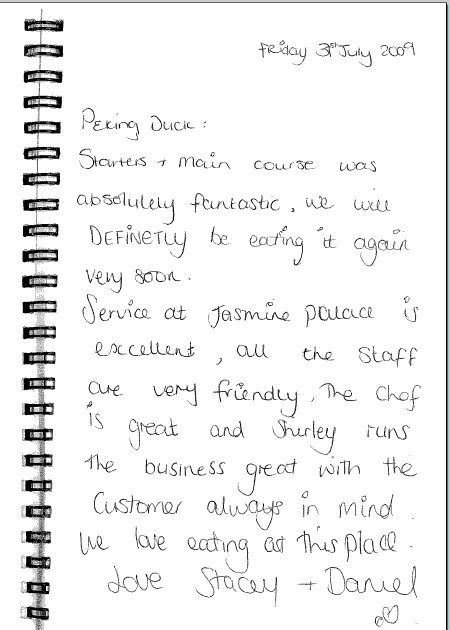 Friday 31st July 2009
Peking Duck:
Starters + main course was
absolutely fantastic, we will
DEFINETLY be eating it again
very soon.
Service at Jasmine palace is
exccellent, all the staff
are very friendly, The Chef
is great and Shirley runs
the business great with the
Customer always in mind.
We love eating at this place.
Love Stacey + Daniel